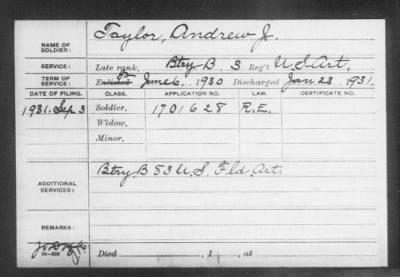 NAME OF SOLDIER: Taylor, Andrew J.
SERVICE: Late rank, Btry B, 3 Reg't U S Art.
TERM OF SERVICE: Enlisted June 6, 1930 Discharged Jan 28, 1931.
DATE OF FILING. CLASS. APPLICATION NO. LAW. CERTIFICATE NO.
1931 Sep 3 Soldier, 1701628 R.E.
Widow,
Minor,
ADDITIONAL SERVICES: Btry. B 83 U.S. Fld Art.
REMARKS:
Died , 1 , at